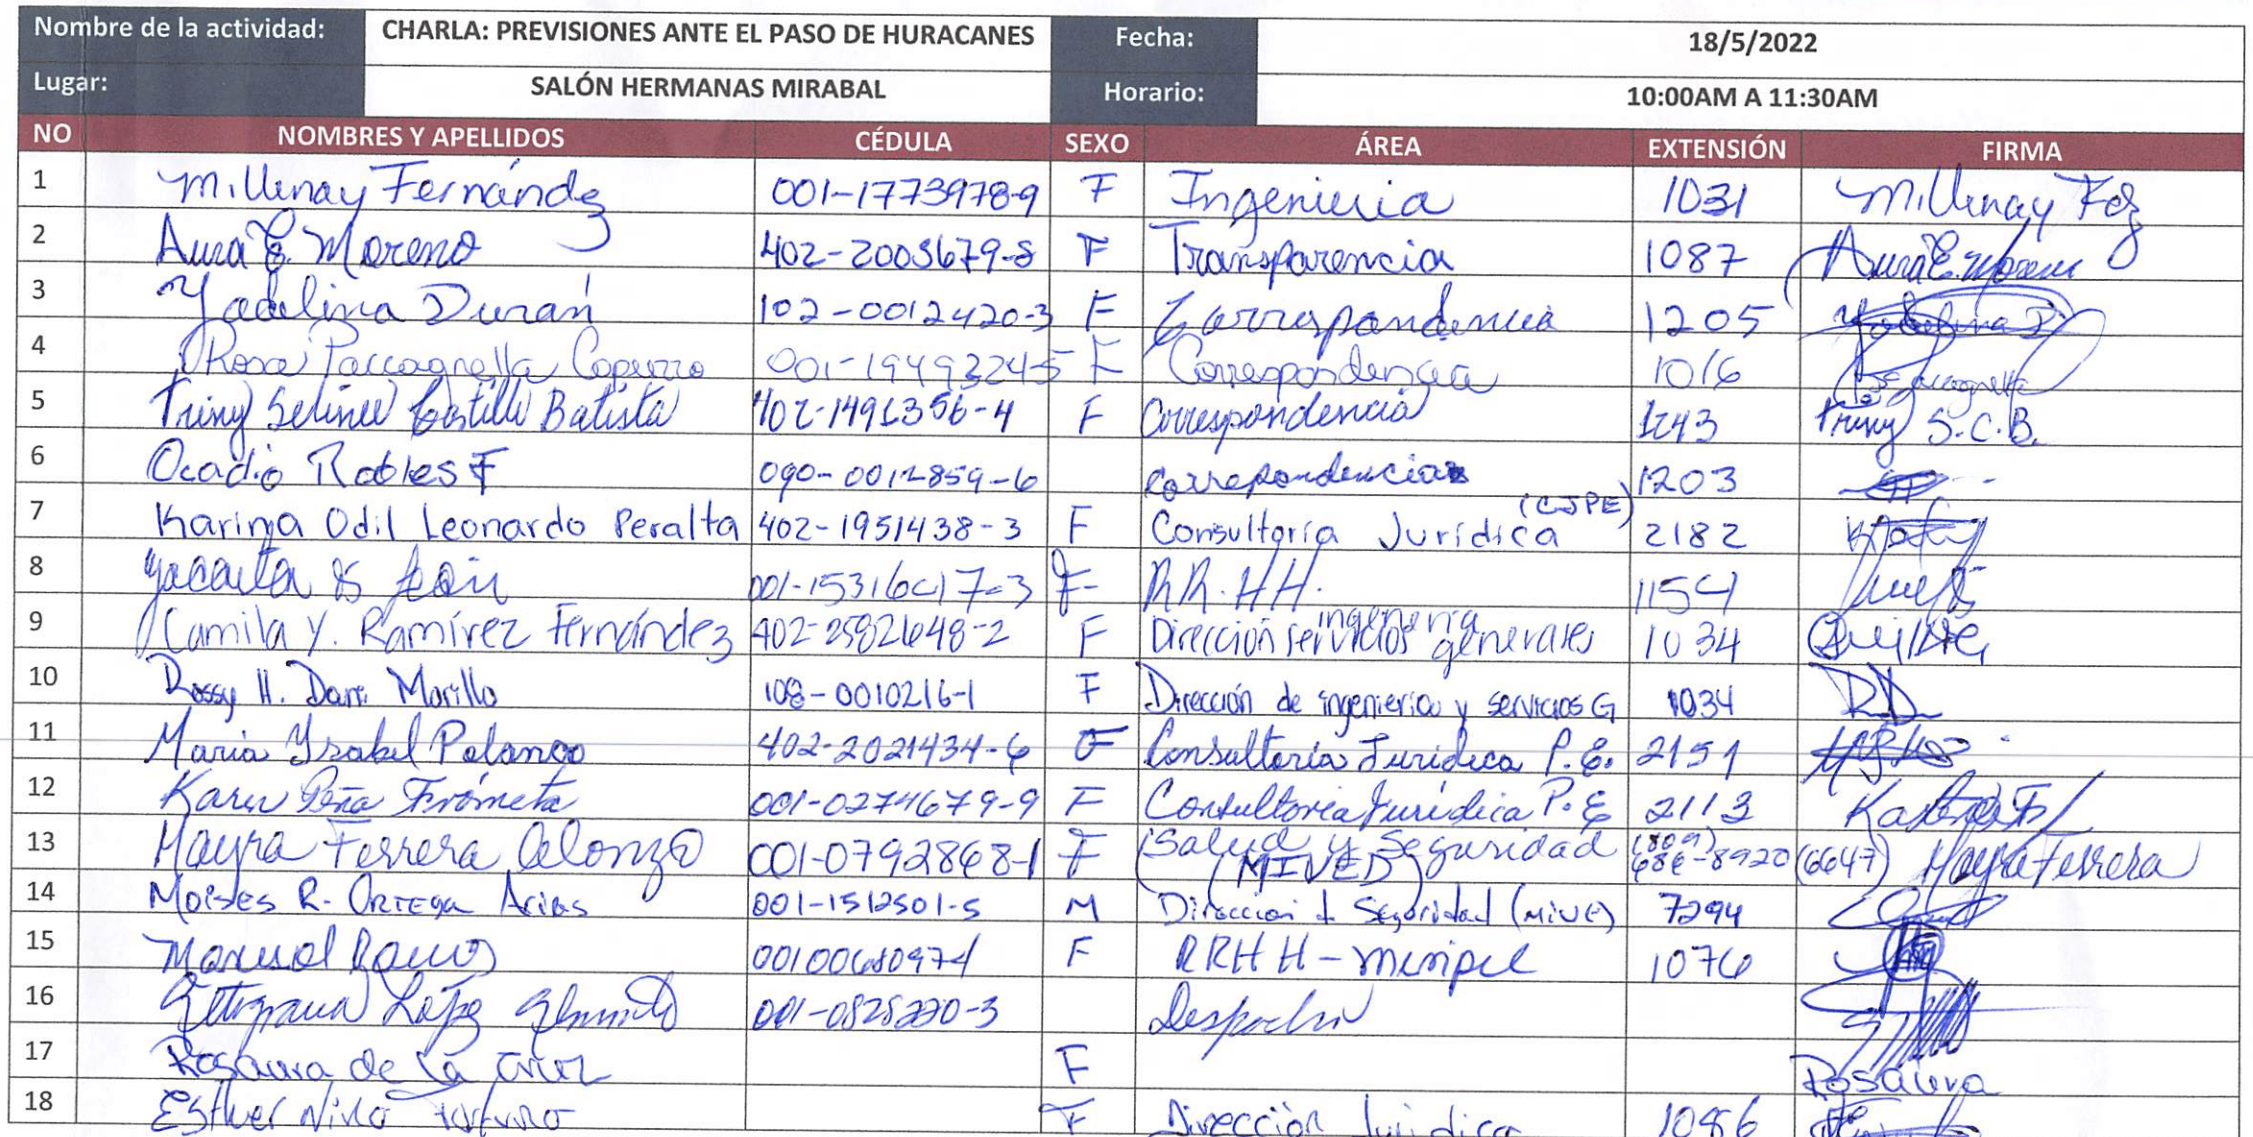 Nombre de la actividad: CHARLA: PREVISIONES ANTE EL PASO DE HURACANES Fecha: 18/5/2022
Lugar: SALÓN HERMANAS MIRABAL Horario: 10:00AM A 11:30AM
NO NOMBRES Y APELLIDOS CÉDULA SEXO ÁREA EXTENSIÓN FIRMA
1 Millenay Fernández 001-1773978-9 F Ingenieria 1031 Millenay Fdz
2 Aura E. Moreno 402-2005679-8 F Transparencia 1087 Aura E. Moreno
3 Yadelina Durán 102-0012420-3 F Correspondencia 1205 Yadelina D.
4 Rosa Paccagnella Capurro 001-1949324-5 F Correspondencia 1016 Paccagnella
5 Triny Selinee Castillo Batista 402-1491356-4 F Correspondencia 1243 Triny S.C.B.
6 Ocadio Robles F 090-0012859-6 Correpondencia 1203
7 Karina Odil Leonardo Peralta 402-1951438-3 F Consultoría Jurídica (CJPE) 2182
8 001-1531647-3 F RR.HH. 1154
9 Camila Y. Ramírez Fernández 402-2582648-2 F Dirección ingenieria servicios generales 1034
10 Rossy H. Morillo 108-0010216-1 F Dirección de ingenieria y servicios G 1034 RD
11 Maria Ysabel Polanco 402-2021434-6 F Consultoria Juridica P.E. 2151
12 Karen Peña Frómeta 001-0274679-9 F Consultoria Juridica P.E 2113
13 Mayra Ferrera Alonzo 001-0792868-1 F (Salud y Seguridad (MIVED) (809) 686-8920 (6647) Mayra Ferrera
14 Moises R. Ortega Arias 001-1512501-5 M Direccion Seguridad (MIVE) 7294
15 Ramos 00100680974 F RRHH- 1076
16 López 001-0828220-3 Despacho
17 Rosaura de la Cruz F Rosaura
18 Esther F Dirección Juridica 1086